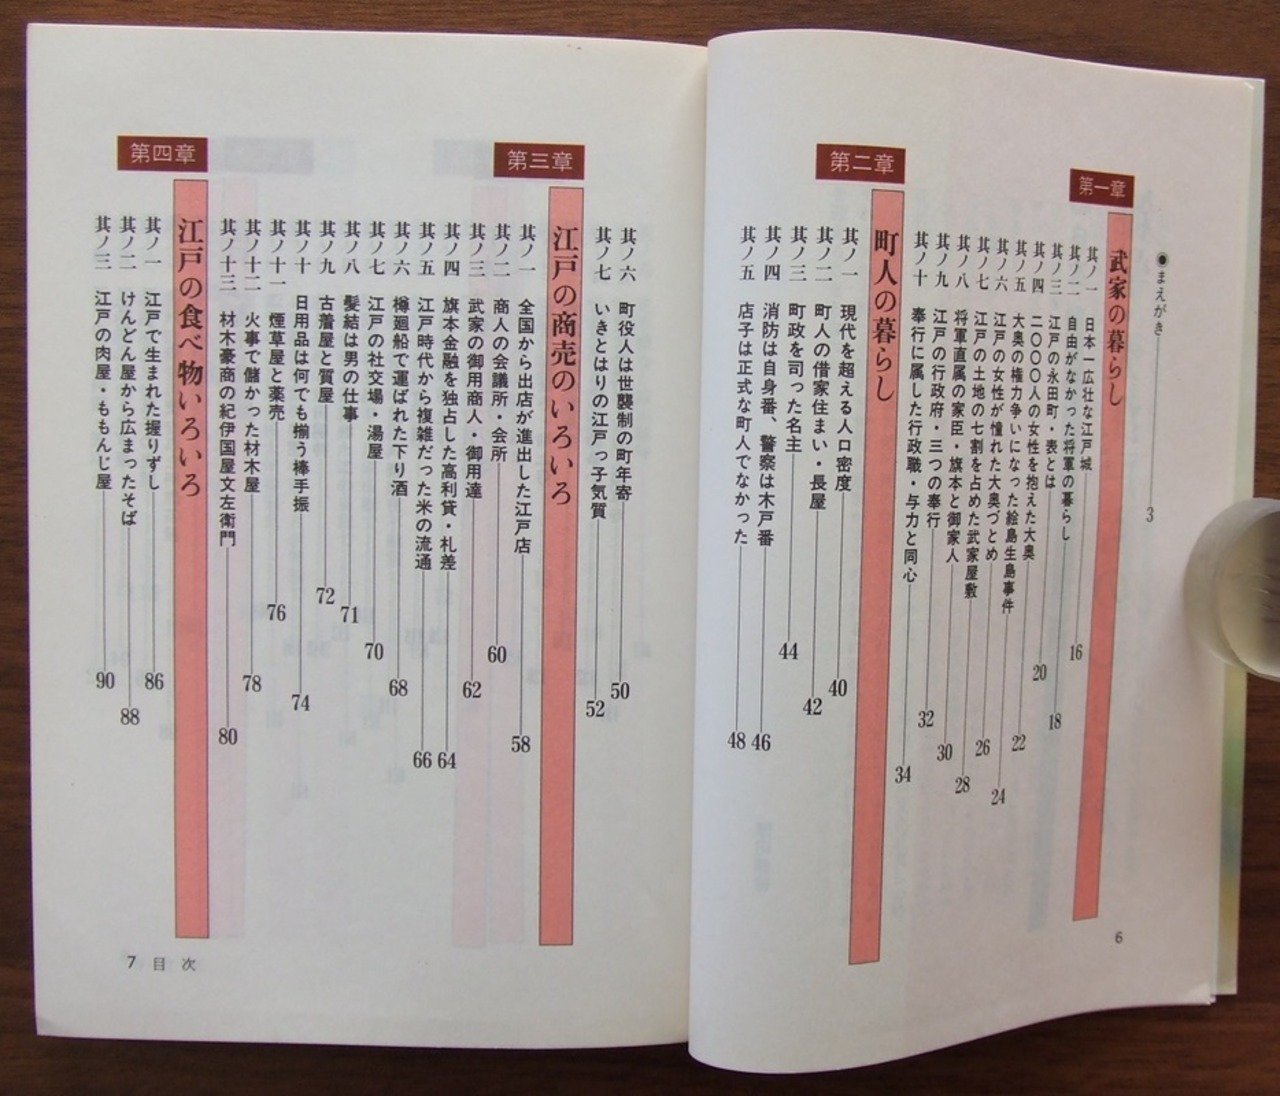 ●まえがき 3
第一章
武家の暮らし
其ノ一 日本一広壮な江戸城 16
其ノ二 自由がなかった将軍の暮らし 18
其ノ三 江戸の永田町・表とは 20
其ノ四 二〇〇〇人の女性を抱えた大奥 22
其ノ五 大奥の権力争いになった絵島生島事件 24
其ノ六 江戸の女性が憧れた大奥づとめ 26
其ノ七 江戸の土地の七割を占めた武家屋敷 28
其ノ八 将軍直属の家臣・旗本と御家人 30
其ノ九 江戸の行政府・三つの奉行 32
其ノ十 奉行に属した行政職・与力と同心 34
第二章
町人の暮らし
其ノ一 現代を超える人口密度 40
其ノ二 町人の借家住まい・長屋 42
其ノ三 町政を司った名主 44
其ノ四 消防は自身番、警察は木戸番 46
其ノ五 店子は正式な町人でなかった 48
6
其ノ六 町役人は世襲制の町年寄 50
其ノ七 いきとはりの江戸っ子気質 52
第三章
江戸の商売のいろいろ
其ノ一 全国から出店が進出した江戸店 58
其ノ二 商人の会議所・会所 60
其ノ三 武家の御用商人・御用達 62
其ノ四 旗本金融を独占した高利貸・札差 64
其ノ五 江戸時代から複雑だった米の流通 66
其ノ六 樽廻船で運ばれた下り酒 68
其ノ七 江戸の社交場・湯屋 70
其ノ八 髪結は男の仕事 71
其ノ九 古着屋と質屋 72
其ノ十 日用品は何でも揃う棒手振 74
其ノ十一 煙草屋と薬売 76
其ノ十二 火事で儲かった材木屋 78
其ノ十三 材木豪商の紀伊国屋文左衛門 80
第四章
江戸の食べ物いろいろ
其ノ一 江戸で生まれた握りずし 86
其ノ二 けんどん屋から広まったそば 88
其ノ三 江戸の肉屋・ももんじ屋 90
7 目次